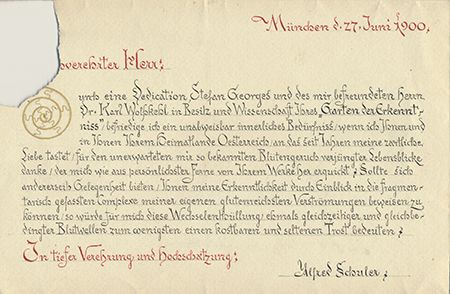 München d. 27. Juni 1900,
verehrter Herr;
eine Dedication Stefan Georges und des mir befreundeten Herrn
Dr. Karl Wolfskehl in Besitz und Wissenschaft Ihres „Garten der Erkennt-
niss“/befriedige ich ein unabweisbar innerliches Bedürfniss/wenn ich Ihnen und
in Ihnen Ihrem Heimatlande Oesterreich/an das seit Jahren meine zärtliche
Liebe tastet/für den unerwarteten mir so bekannten Blutgeruch verjüngter Lebensblicke
danke/der mich wie aus persönlichster Ferne von Ihrem Werke her erquickt; Sollte sich
andererseits Gelegenheit bieten/Ihnen meine Erkenntlichkeit durch Einblick in die fragmen-
tarisch gefassten Complexe meiner eigenen glutenreichsten Verströmungen beweisen zu
können/so würde für mich diese Wechselenthüllung/ehmals gleichzeitiger und gleichbe-
dingter Blutwellen zum wenigsten einen kostbaren und seltenen Trost bedeuten;
In tiefer Verehrung und Hochschätzung;
Alfred Schuler;